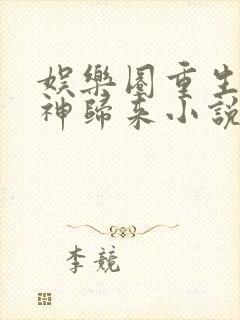 娱樂圈重生
神歸来小說
李競